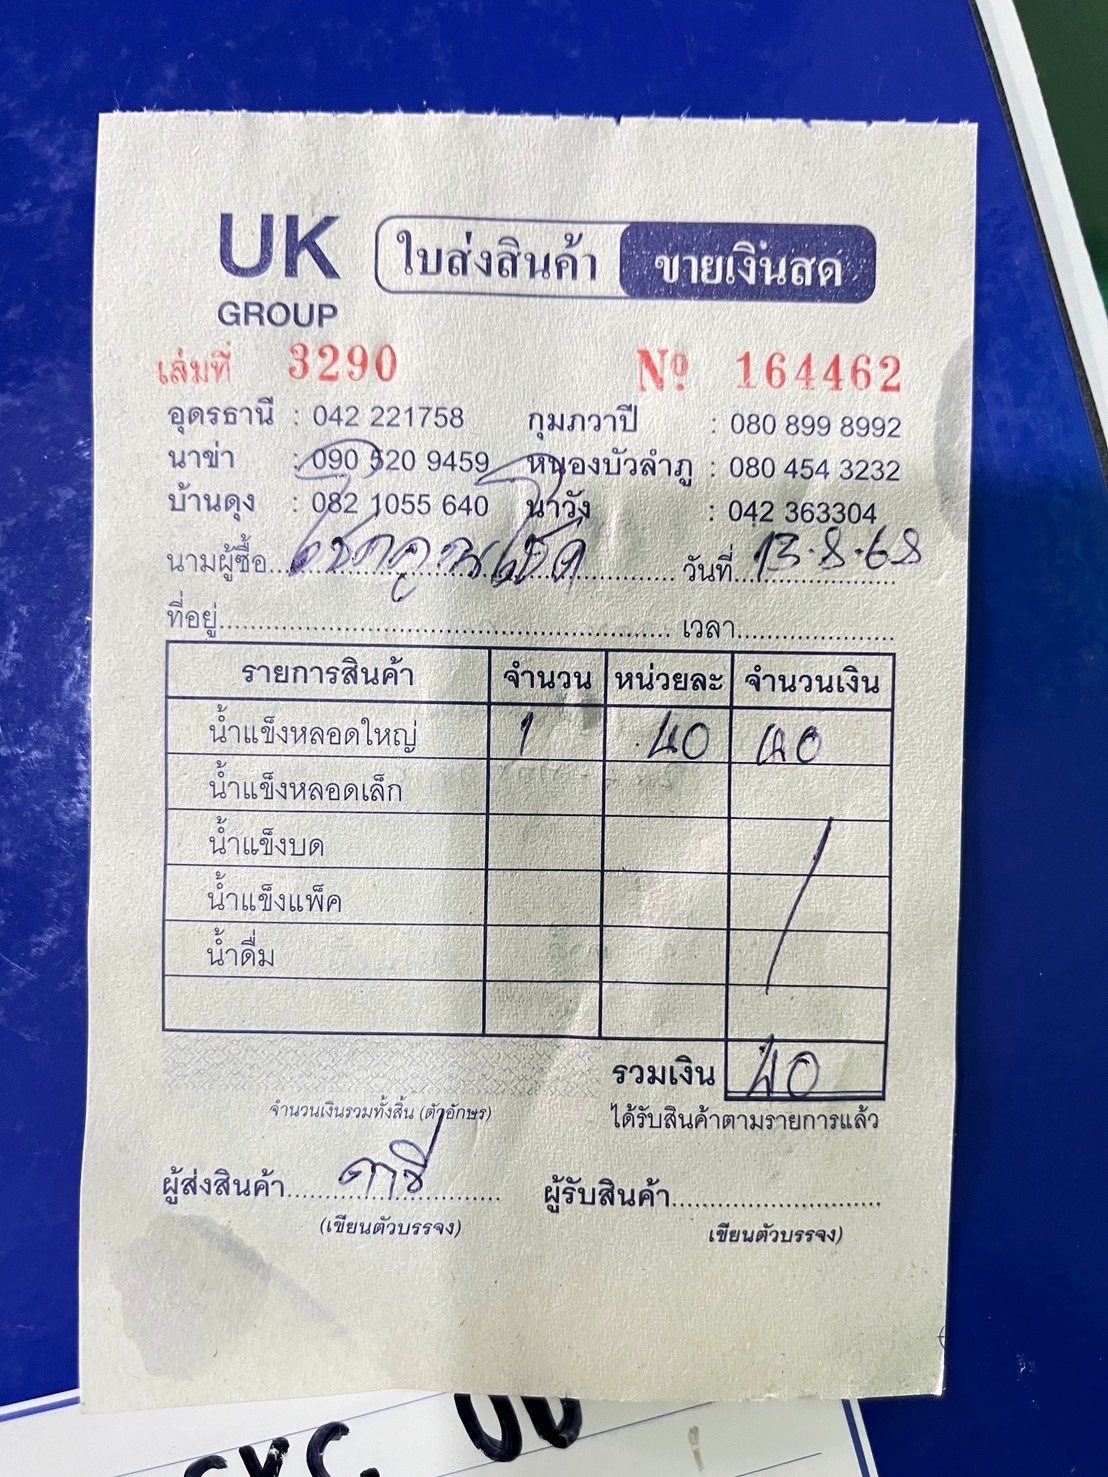 UK GROUP ใบส่งสินค้า ขายเงินสด
เล่มที่ 3290 Nº 164462
อุดรธานี : 042 221758 กุมภวาปี : 080 899 8992
นาข่า : 090 520 9459 หนองบัวลำภู : 080 454 3232
บ้านดุง : 082 1055 640 นาวัง : 042 363304
นามผู้ซื้อ โชคคูณโชค วันที่ 13.8.68
ที่อยู่ เวลา
รายการสินค้า จำนวน หน่วยละ จำนวนเงิน
น้ำแข็งหลอดใหญ่ 1 40 40
น้ำแข็งหลอดเล็ก
น้ำแข็งบด
น้ำแข็งแพ็ค
น้ำดื่ม
รวมเงิน 40
จำนวนเงินรวมทั้งสิ้น (ตัวอักษร) ได้รับสินค้าตามรายการแล้ว
ผู้ส่งสินค้า ผู้รับสินค้า
(เขียนตัวบรรจง) เขียนตัวบรรจง)